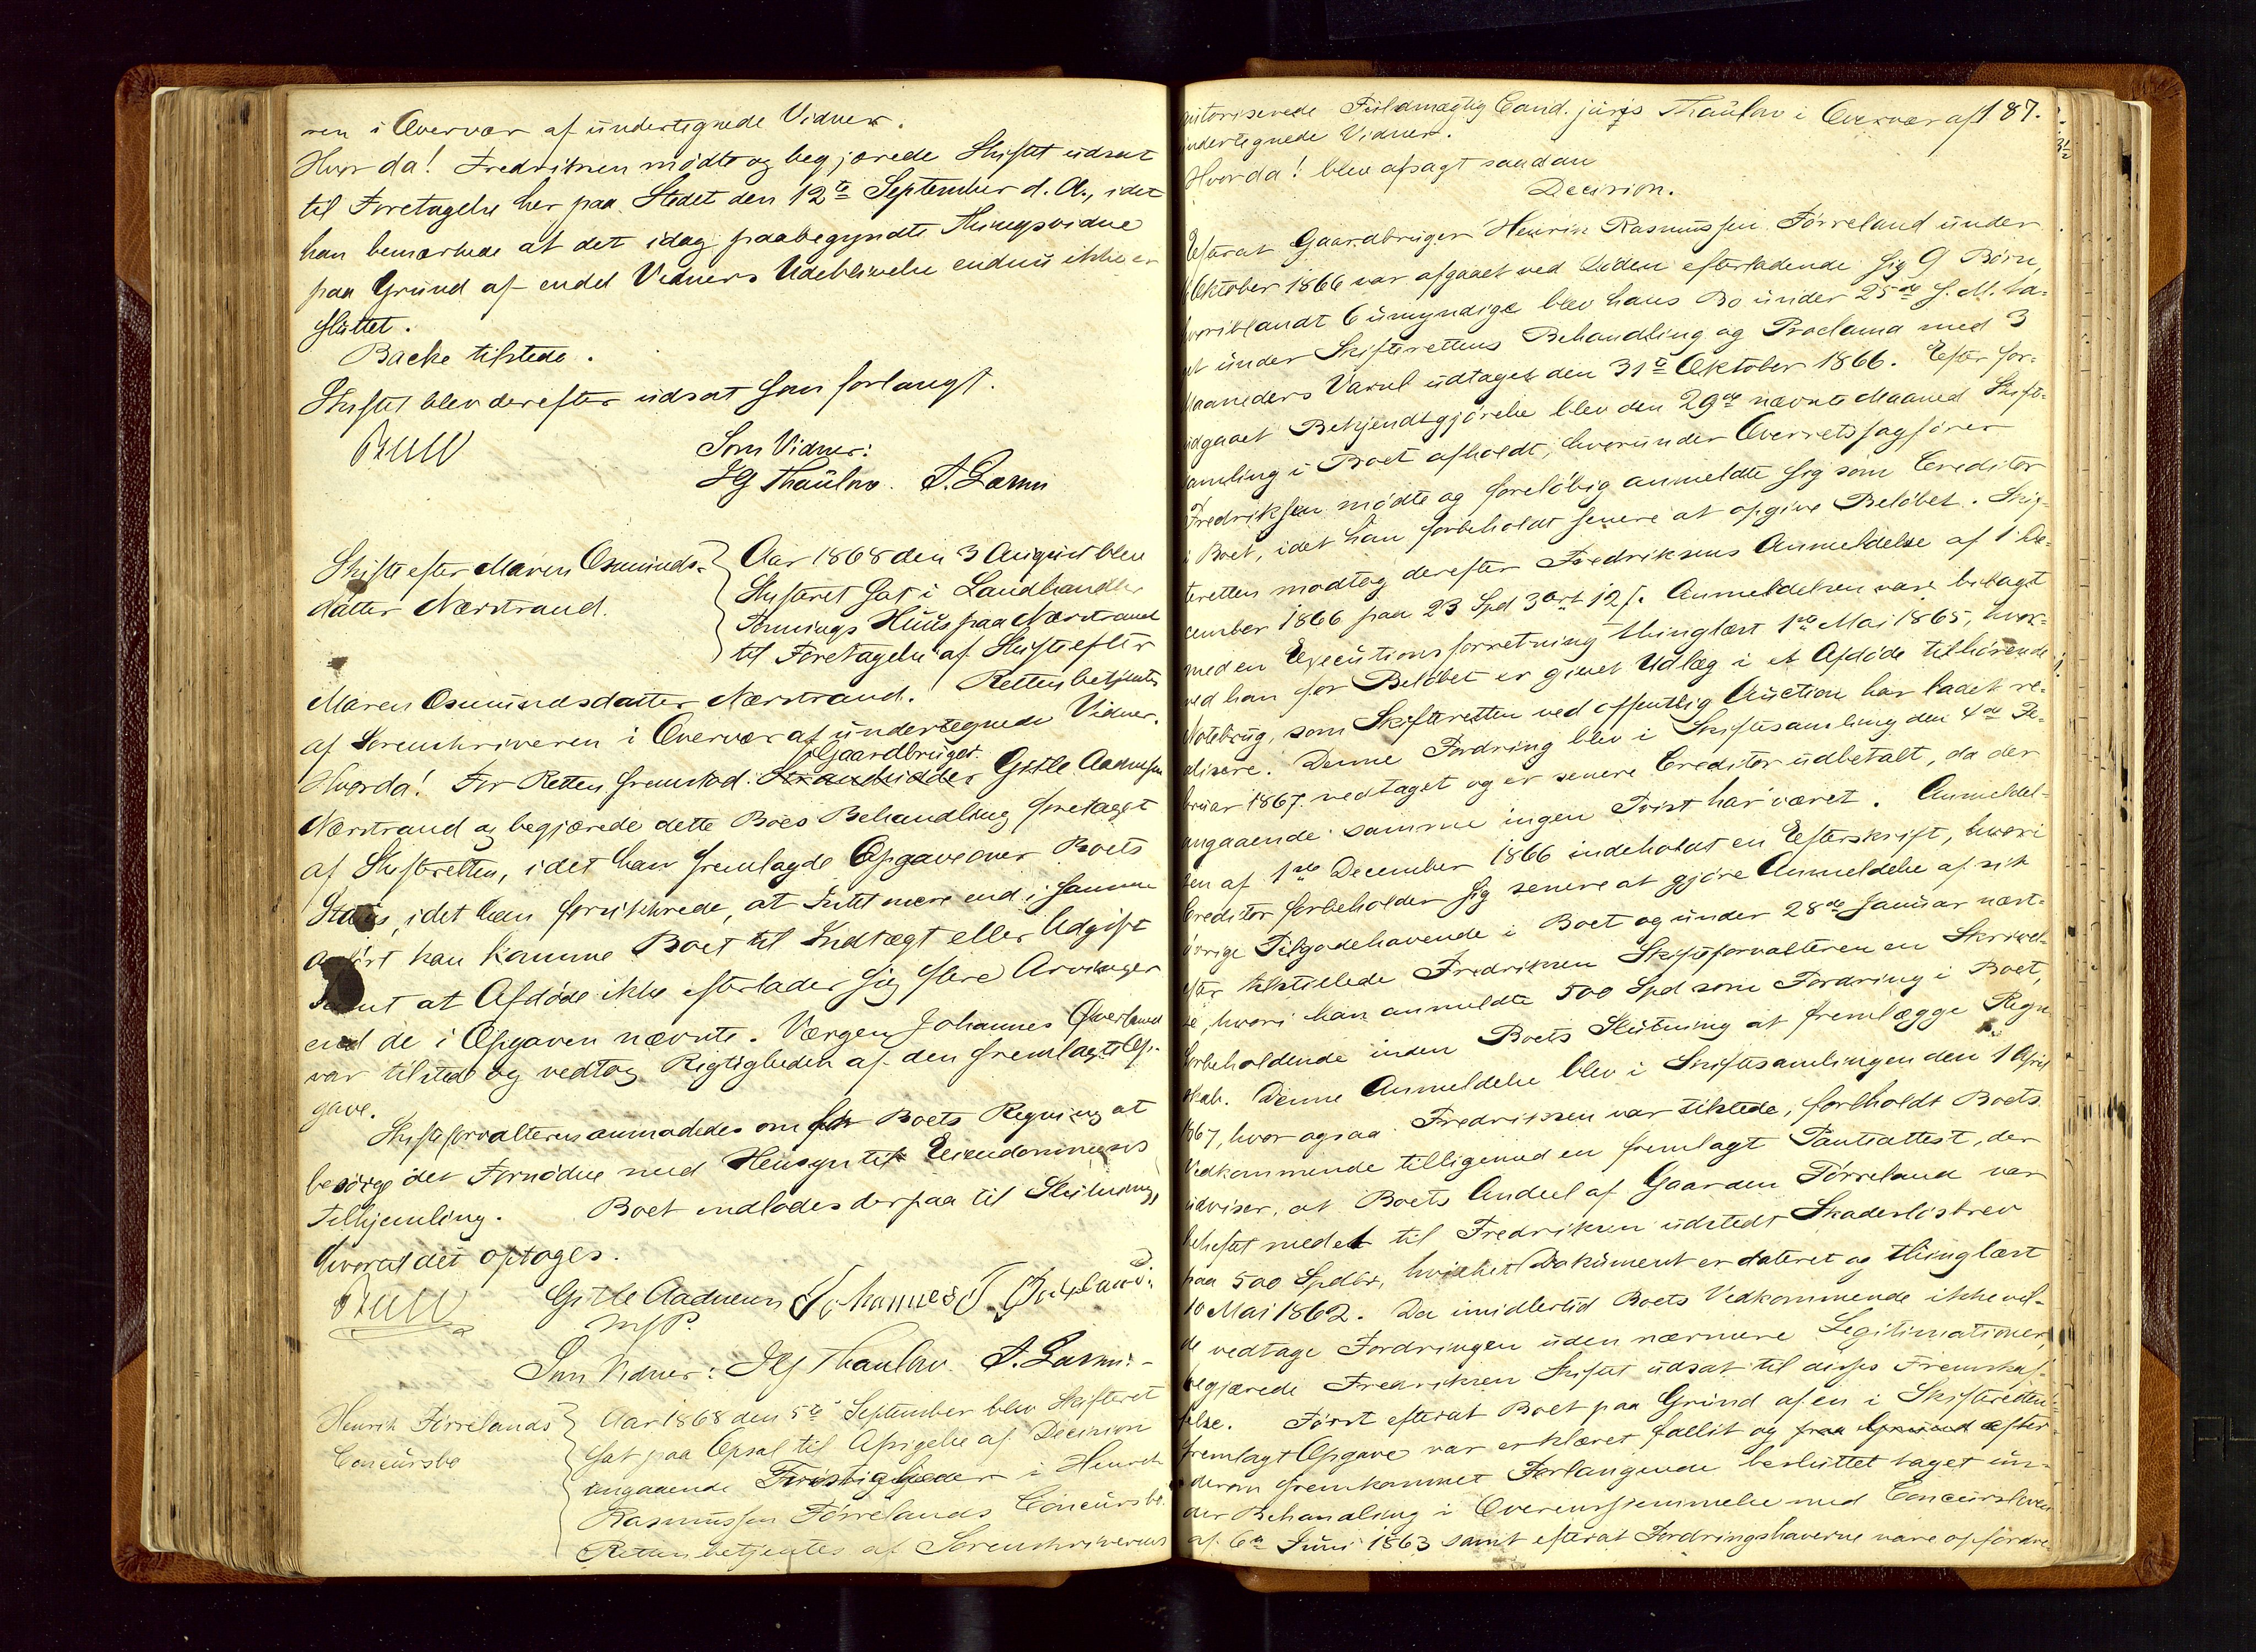 ren i Overvær af undertegnede Vidner.
Hvor da! Fredriksen mødte og begjærede Skiftet udsat
til Foretagelse her paa Stedet den 12te September d. A., idet
han bemærkede at det idag paabegyndte Thingsvidne
paa Grund af endel Vidners Udeblivelse endnu ikke er
sluttet.
Backe tilstede.
Skiftet blev derefter udsat som forlangt.
Som Vidner:
JG Thaulow. S. Larsen
Skifte efter Maren Osmunds-
datter Nærstrand.
Aar 1868 den 3 August blev
Skifteret sat i Landhandler
Hennings Huus paa Nærstrand
til Foretagelse af Skifte efter
Maren Osmundsdatter Nærstrand. Retten betjentes
af Sorenskriveren i Overvær af undertegnede Vidner.
Hvorda! For Retten fremstod Gaardbruger Gitle Aadnesen
Nærstrand og begjærede dette Boes Behandling foretaget
af Skifteretten, idet han fremlagde Opgave over Boets
Status, idet han forsikkrede, at Intet mere end i samme
anført kan komme Boet til Indtægt eller Udgift
samt at Afdøde ikke efterlader sig flere Arvinger
end de i Opgaven nævnte. Værgen Johannes Øverland
var tilstede og vedtog Rigtigheden af den fremlagte Op-
gave.
Skifteforvalteren anmodedes om for Boets Regning at
besørge det Fornødne med Hensyn til Eiendommens
Tilhjemling. Boet indlodes derpaa til Slutning,
hvoral det optoges.
Gitle Aadnesen Johannes T.
m f P.
Som Vidner: JG Thaulow. S. Larsen.
Henrik Førrelands
Concursbo
Aar 1868 den 5te September blev Skifteret
sat paa Opsal til Afsigelse af Decision
angaaende Tvistigheder i Henrik
Rasmussen Førrelands Concursbo.
Retten betjentes af Sorenskriverens
187.
autoriserede Fuldmægtig Cand. juris Thaulow i Overvær af
undertegnede Vidner.
Hvorda! blev afsagt saadan
Decision.
Efterat Gaardbruger Henrik Rasmussen Førreland under
Oktober 1866 var afgaaet ved Døden efterladende sig 9 Børn,
hvoriblandt 6 umyndige blev hans Bo under 25de s. M. ta-
get under Skifterettens Behandling og Proclama med 3
Maaneders Varsel udtaget den 31te Oktober 1866. Efter for-
udgaaet Bekjendtgjørelse blev den 29de nævnte Maaned Skifte-
samling i Boet afholdt, hvorunder Overretssagfører
Fredriksen mødte og foreløbig anmeldte sig som Creditor
i Boet, idet han forbeholdt senere at opgive Beløbet. Skif-
teretten modtog derefter Fredriksens Anmeldelse af 1 De-
cember 1866 paa 23 Spd 3 Ort 12 s. Anmeldelsen var bilagt
med en Executionsforretning thinglæst 1ste Mai 1865, hvor-
ved han for Beløbet er givet Udlæg i et Afdøde tilhørende
Notebrug, som Skifteretten ved offentlig Auction har ladet re-
alisere. Denne Fordring blev i Skiftesamling den 4de Fe-
bruar 1867 vedtaget og er senere Creditor udbetalt, da der
angaaende samme ingen Tvist har været. Anmeldel-
sen af 1ste December 1866 indeholdt en Efterskrift, hvori
Creditor forbeholder sig senere at gjøre Anmeldelse af sit
øvrige Tilgodehavende i Boet og under 28de Januar næst-
efter tilstillede Fredriksen Skifteforvalteren en Skrivel-
se, hvori han anmeldte 500 Spd som Fordring i Boet,
forbeholdende inden Boets Slutning at fremlægge Regn-
skab. Denne Anmeldelse blev i Skiftesamlingen den 1 April
1867, hvor ogsaa Fredriksen var tilstede, foreholdt Boets
Vedkommende tilligemed en fremlagt Panteattest, der
udviser, at Boets Andeel af Gaarden Førreland var
beheftet med et til Fredriksen udstedt Skadesløsbrev
paa 500 Spdlr, hvilket Dokument er dateret og thinglæst
10 Mai 1862. Da imidlertid Boets Vedkommende ikke vil-
de vedtage Fordringen uden nærmere Legitimationer,
begjærede Fredriksen Skiftet udsat til disses Fremskaf-
felse. Først efterat Boet paa Grund af en i Skifteretten
fremlagt Opgave var erklæret fallit og paa Grund efter
derom fremkommet Forlangende besluttet taget un-
der Behandling i Overensstemmelse med Concursloven
af 6te Juni 1863 samt efterat Fordringshaverne vare opfordre-